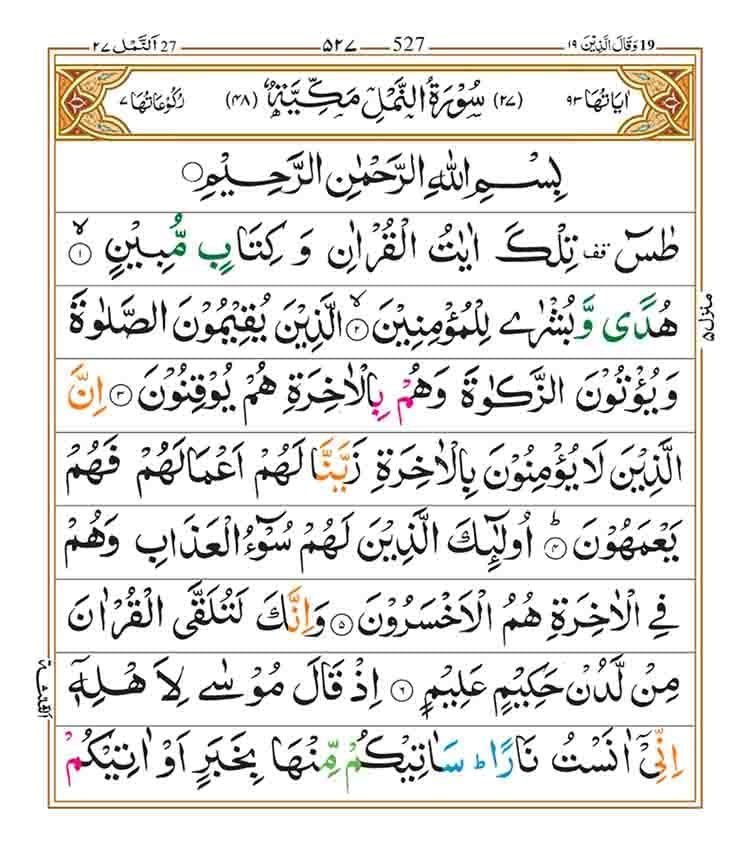 19 وَقَالَ الَّذِيْنَ ١٩ 527 ۵۲۷ 27 اَلنَّمْل ۲۷
اٰيَاتُهَا ٩٣ (٢٧) سُوْرَةُ النَّمْلِ مَكِّيَّةٌ (٤٨) رُكُوْعَاتُهَا ٧
بِسْمِ اللّٰهِ الرَّحْمٰنِ الرَّحِيْمِ۝
طٰسٓ تف تِلْكَ اٰيٰتُ الْقُرْاٰنِ وَ كِتَابٍ مُّبِيْنٍۙ۝١
هُدًى وَّبُشْرٰى لِلْمُؤْمِنِيْنَۙ۝٢ الَّذِيْنَ يُقِيْمُوْنَ الصَّلٰوةَ
منزل ۵
وَيُؤْتُوْنَ الزَّكٰوةَ وَهُمْ بِالْاٰخِرَةِ هُمْ يُوْقِنُوْنَ۝٣ اِنَّ
الَّذِيْنَ لَا يُؤْمِنُوْنَ بِالْاٰخِرَةِ زَيَّنَّا لَهُمْ اَعْمَالَهُمْ فَهُمْ
يَعْمَهُوْنَؕ۝٤ اُولٰٓئِكَ الَّذِيْنَ لَهُمْ سُوْٓءُ الْعَذَابِ وَهُمْ
فِي الْاٰخِرَةِ هُمُ الْاَخْسَرُوْنَ۝٥ وَاِنَّكَ لَتُلَقَّى الْقُرْاٰنَ
مِنْ لَّدُنْ حَكِيْمٍ عَلِيْمٍ۝٦ اِذْ قَالَ مُوْسٰى لِاَهْلِهٖٓ
اِنِّيْٓ اٰنَسْتُ نَارًاؕ سَاٰتِيْكُمْ مِّنْهَا بِخَبَرٍ اَوْ اٰتِيْكُمْ